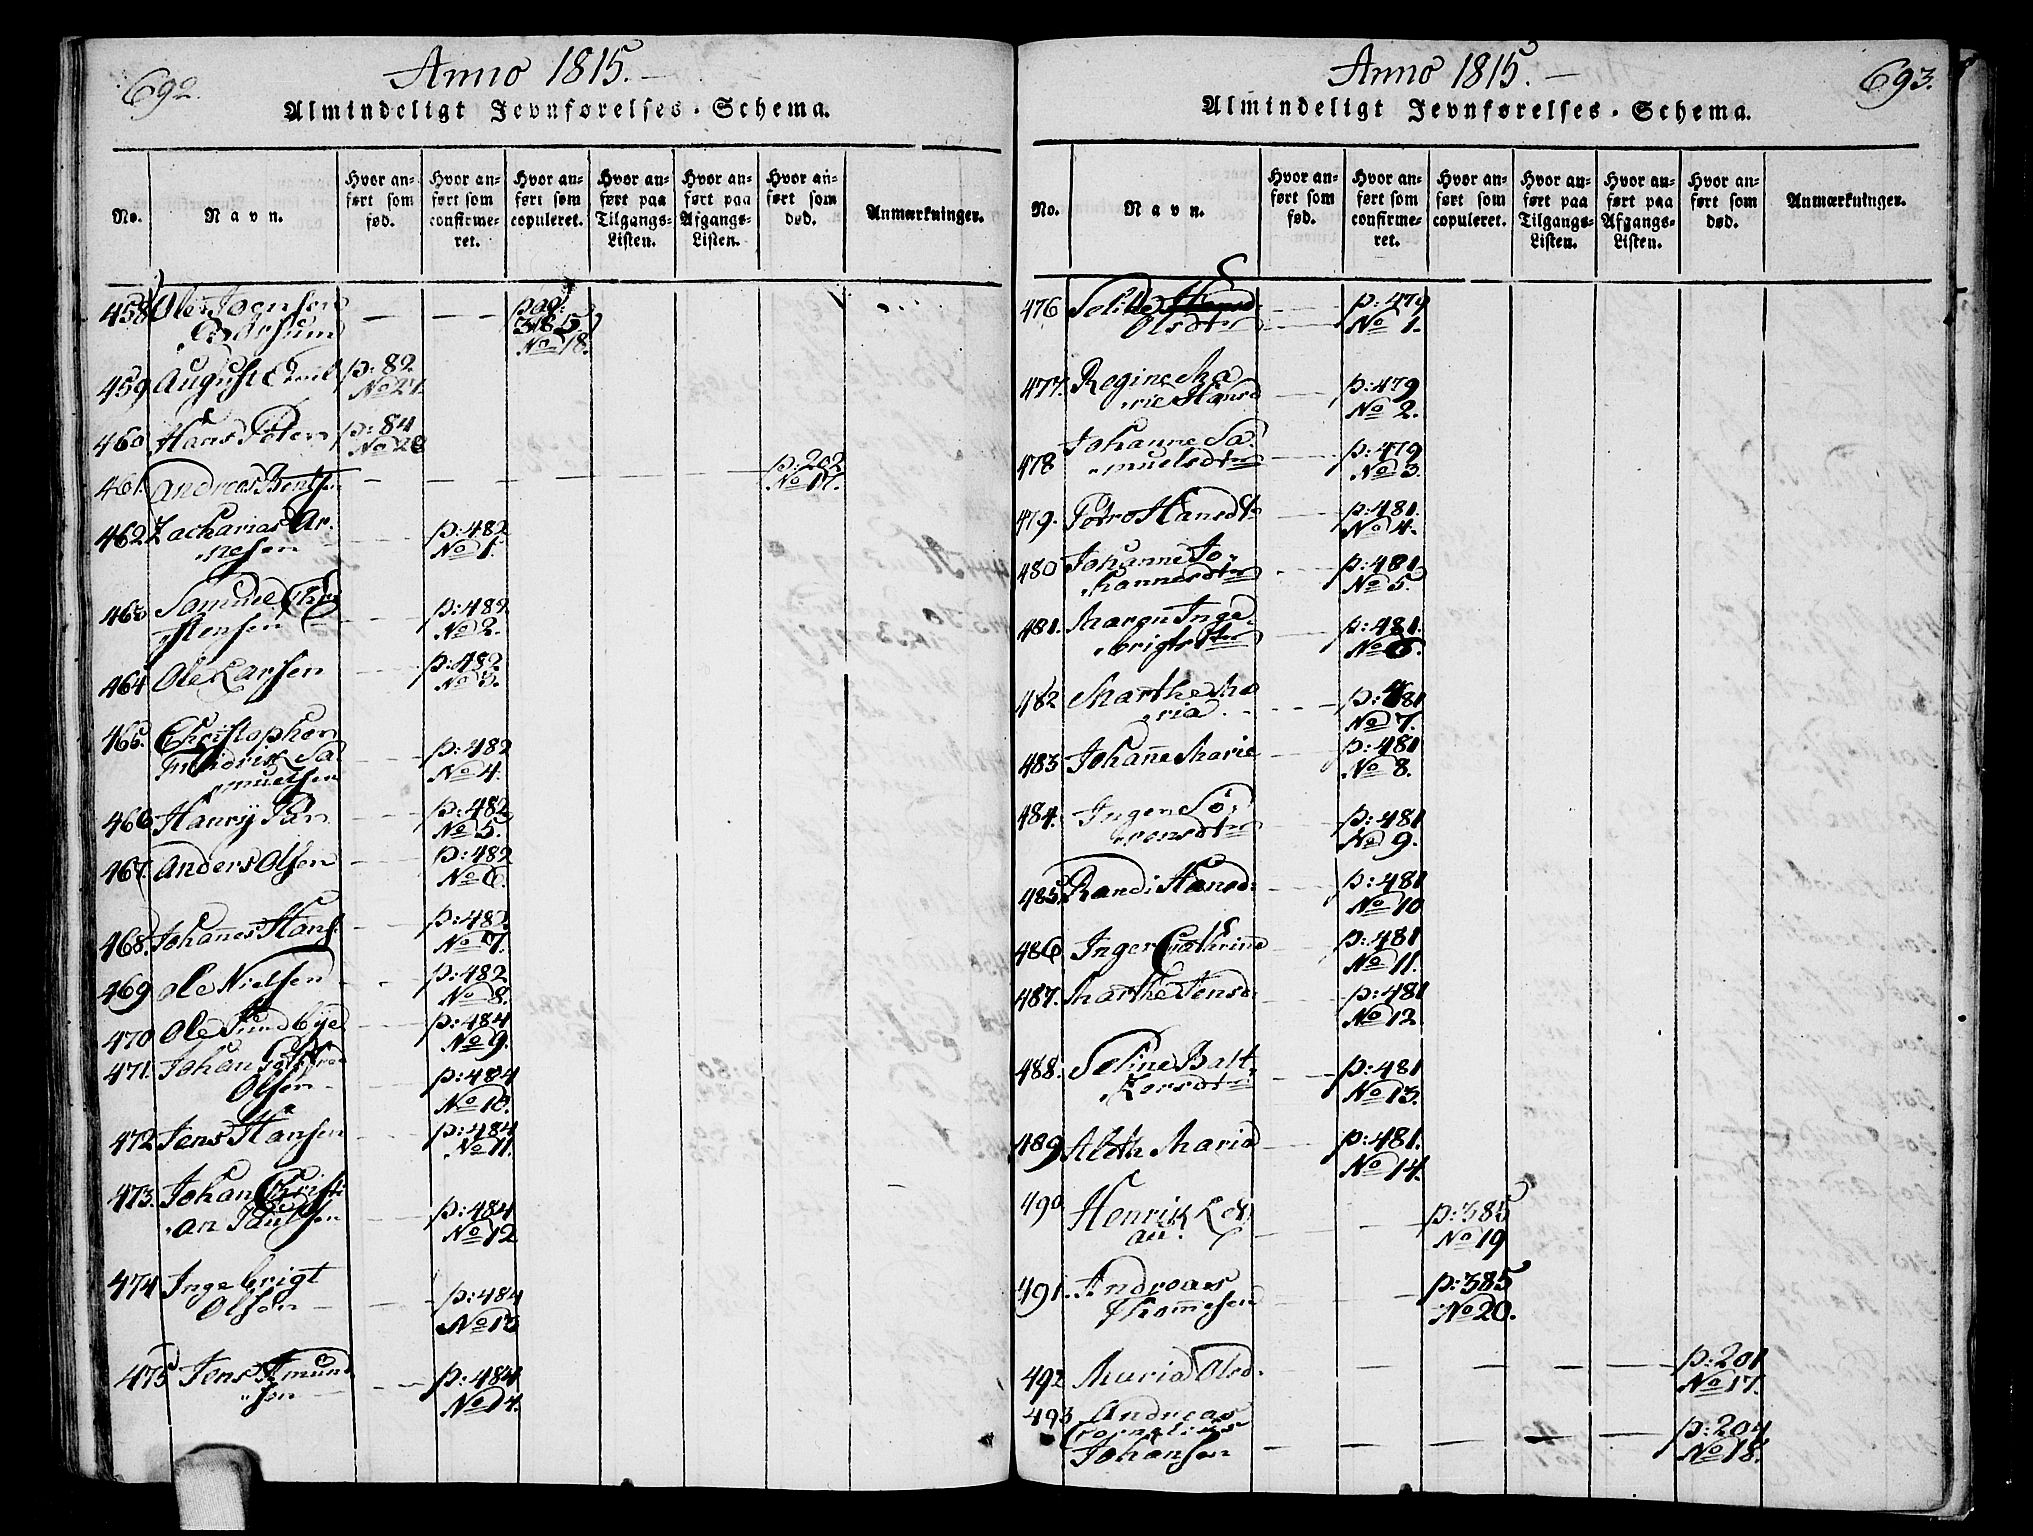 692.
Anno 1815.
Almindeligt Jevnførelses-Schema.
No.
Navn.
Hvor an-
ført som
fød.
Hvor an-
ført som
confirme-
ret.
Hvor an-
ført som
copuleret.
Hvor an-
ført paa
Tilgangs-
Listen.
Hvor an-
ført paa
Afgangs-
Listen.
Hvor an-
ført som
død.
Anmærkninger.
458 Ole Joensen
pag:
3185
No 18.
459 August Emil p: 82
No 27.
460 Hans Peter p: 84
No 28
461. Andreas Bentsen p: 202
No 17.
462 Zacharias Ar- p: 482
nesen No 1.
463 Samuel Chri p: 482
stensen No 2.
464 Ole Larsen p: 482
No 3.
465. Christopher
Friedrik Sa p: 482
muelsen No 4.
466 Hanry p: 482
No 5.
467. Anders Olsen p: 482
No 6.
468. Johannes Hans: p: 482
No 7.
469 Ole Nielsen p: 482
No 8.
470 Ole Sundbye p: 484
No 9.
471. Johan
Olsen p: 484
No 10.
472 Jens Hansen p: 484
No 11.
473. Johan Christi
an Paulsen p: 484
No 12
474 Ingebrigt
Olsen p: 484
No 13
475 Jens Amund
sen p: 484
No 14.
693.
Anno 1815.
Almindeligt Jevnførelses-Schema.
No.
Navn.
Hvor an-
ført som
fød.
Hvor an-
ført som
confirme-
ret.
Hvor an-
ført som
copuleret.
Hvor an-
ført paa
Tilgangs-
Listen.
Hvor an-
ført paa
Afgangs-
Listen.
Hvor an-
ført som
død.
Anmærkninger.
476 p: 479
Olsdtr No 1.
477. Regine Ma
rie Hansd p: 479
No 2.
478 Johanne Sa
muelsdtr p: 479
No 3.
479. Petro Hansdtr p: 481.
No 4.
480 Johanne Jo-
hannesdtr p: 481.
No 5.
481. Maren Inge
brigtsdtr p: 481.
No 6.
482 Marthe Ma
ria p: 481
No 7.
483 Johanne Marie p: 481
No 8.
484. Inger Sø-
rensdtr p: 481
No 9.
485 Randi Hansd: p: 481
No 10
486 Inger Cathrine p: 481
No 11.
487. Marthe Jensd: p: 481
No 12.
488. Seline Balt
zersdtr p: 481
No 13.
489 Aleth Maria p: 481.
No 14.
490 Henrik
p: 385
No 19
491. Andreas
Thomesen p: 385
No 20.
492 Maria Olsd. p: 201
No 17.
493 Andreas
Cornelius
Johansen p: 204
No 18.